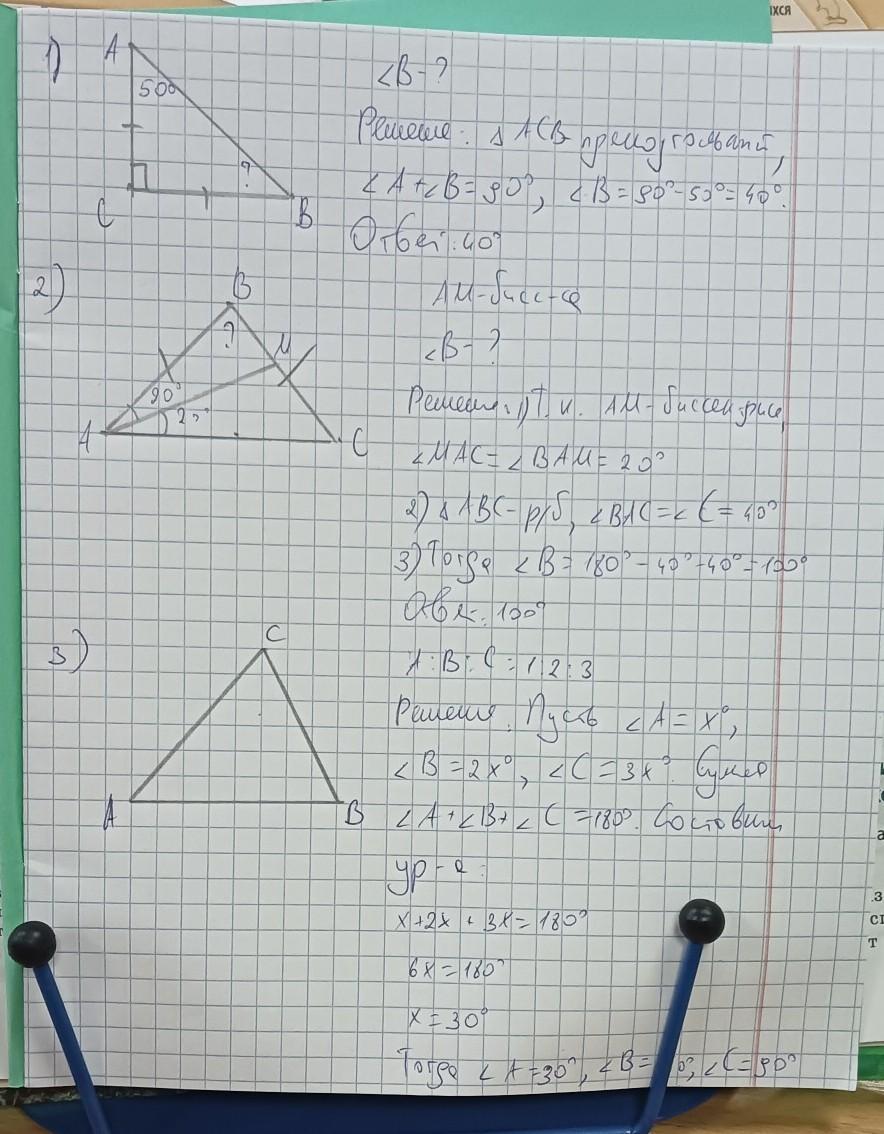 ихся
1)
A
50°
?
C
B
∠B-?
Решение: △ACB прямоугольный,
∠A+∠B=90°, ∠B=90°-50°=40°.
Ответ: 40°
2)
B
?
M
20°
20°
A
C
AM-бисс-са
∠B-?
Решение: 1) Т.к. AM-биссектриса,
∠MAC=∠BAM=20°
2) △ABC-р/б, ∠BAC=∠C=40°
3) Тогда ∠B=180°-40°-40°=100°
Ответ: 100°
3)
C
A
B
A:B:C=1:2:3
Решение. Пусть ∠A=x°,
∠B=2x°, ∠C=3x°. Сумма
∠A+∠B+∠C=180°. Составим
ур-е:
x+2x+3x=180°
6x=180°
x=30°
Тогда ∠A=30°, ∠B= 0°, ∠C=90°
.3
СІ
Т